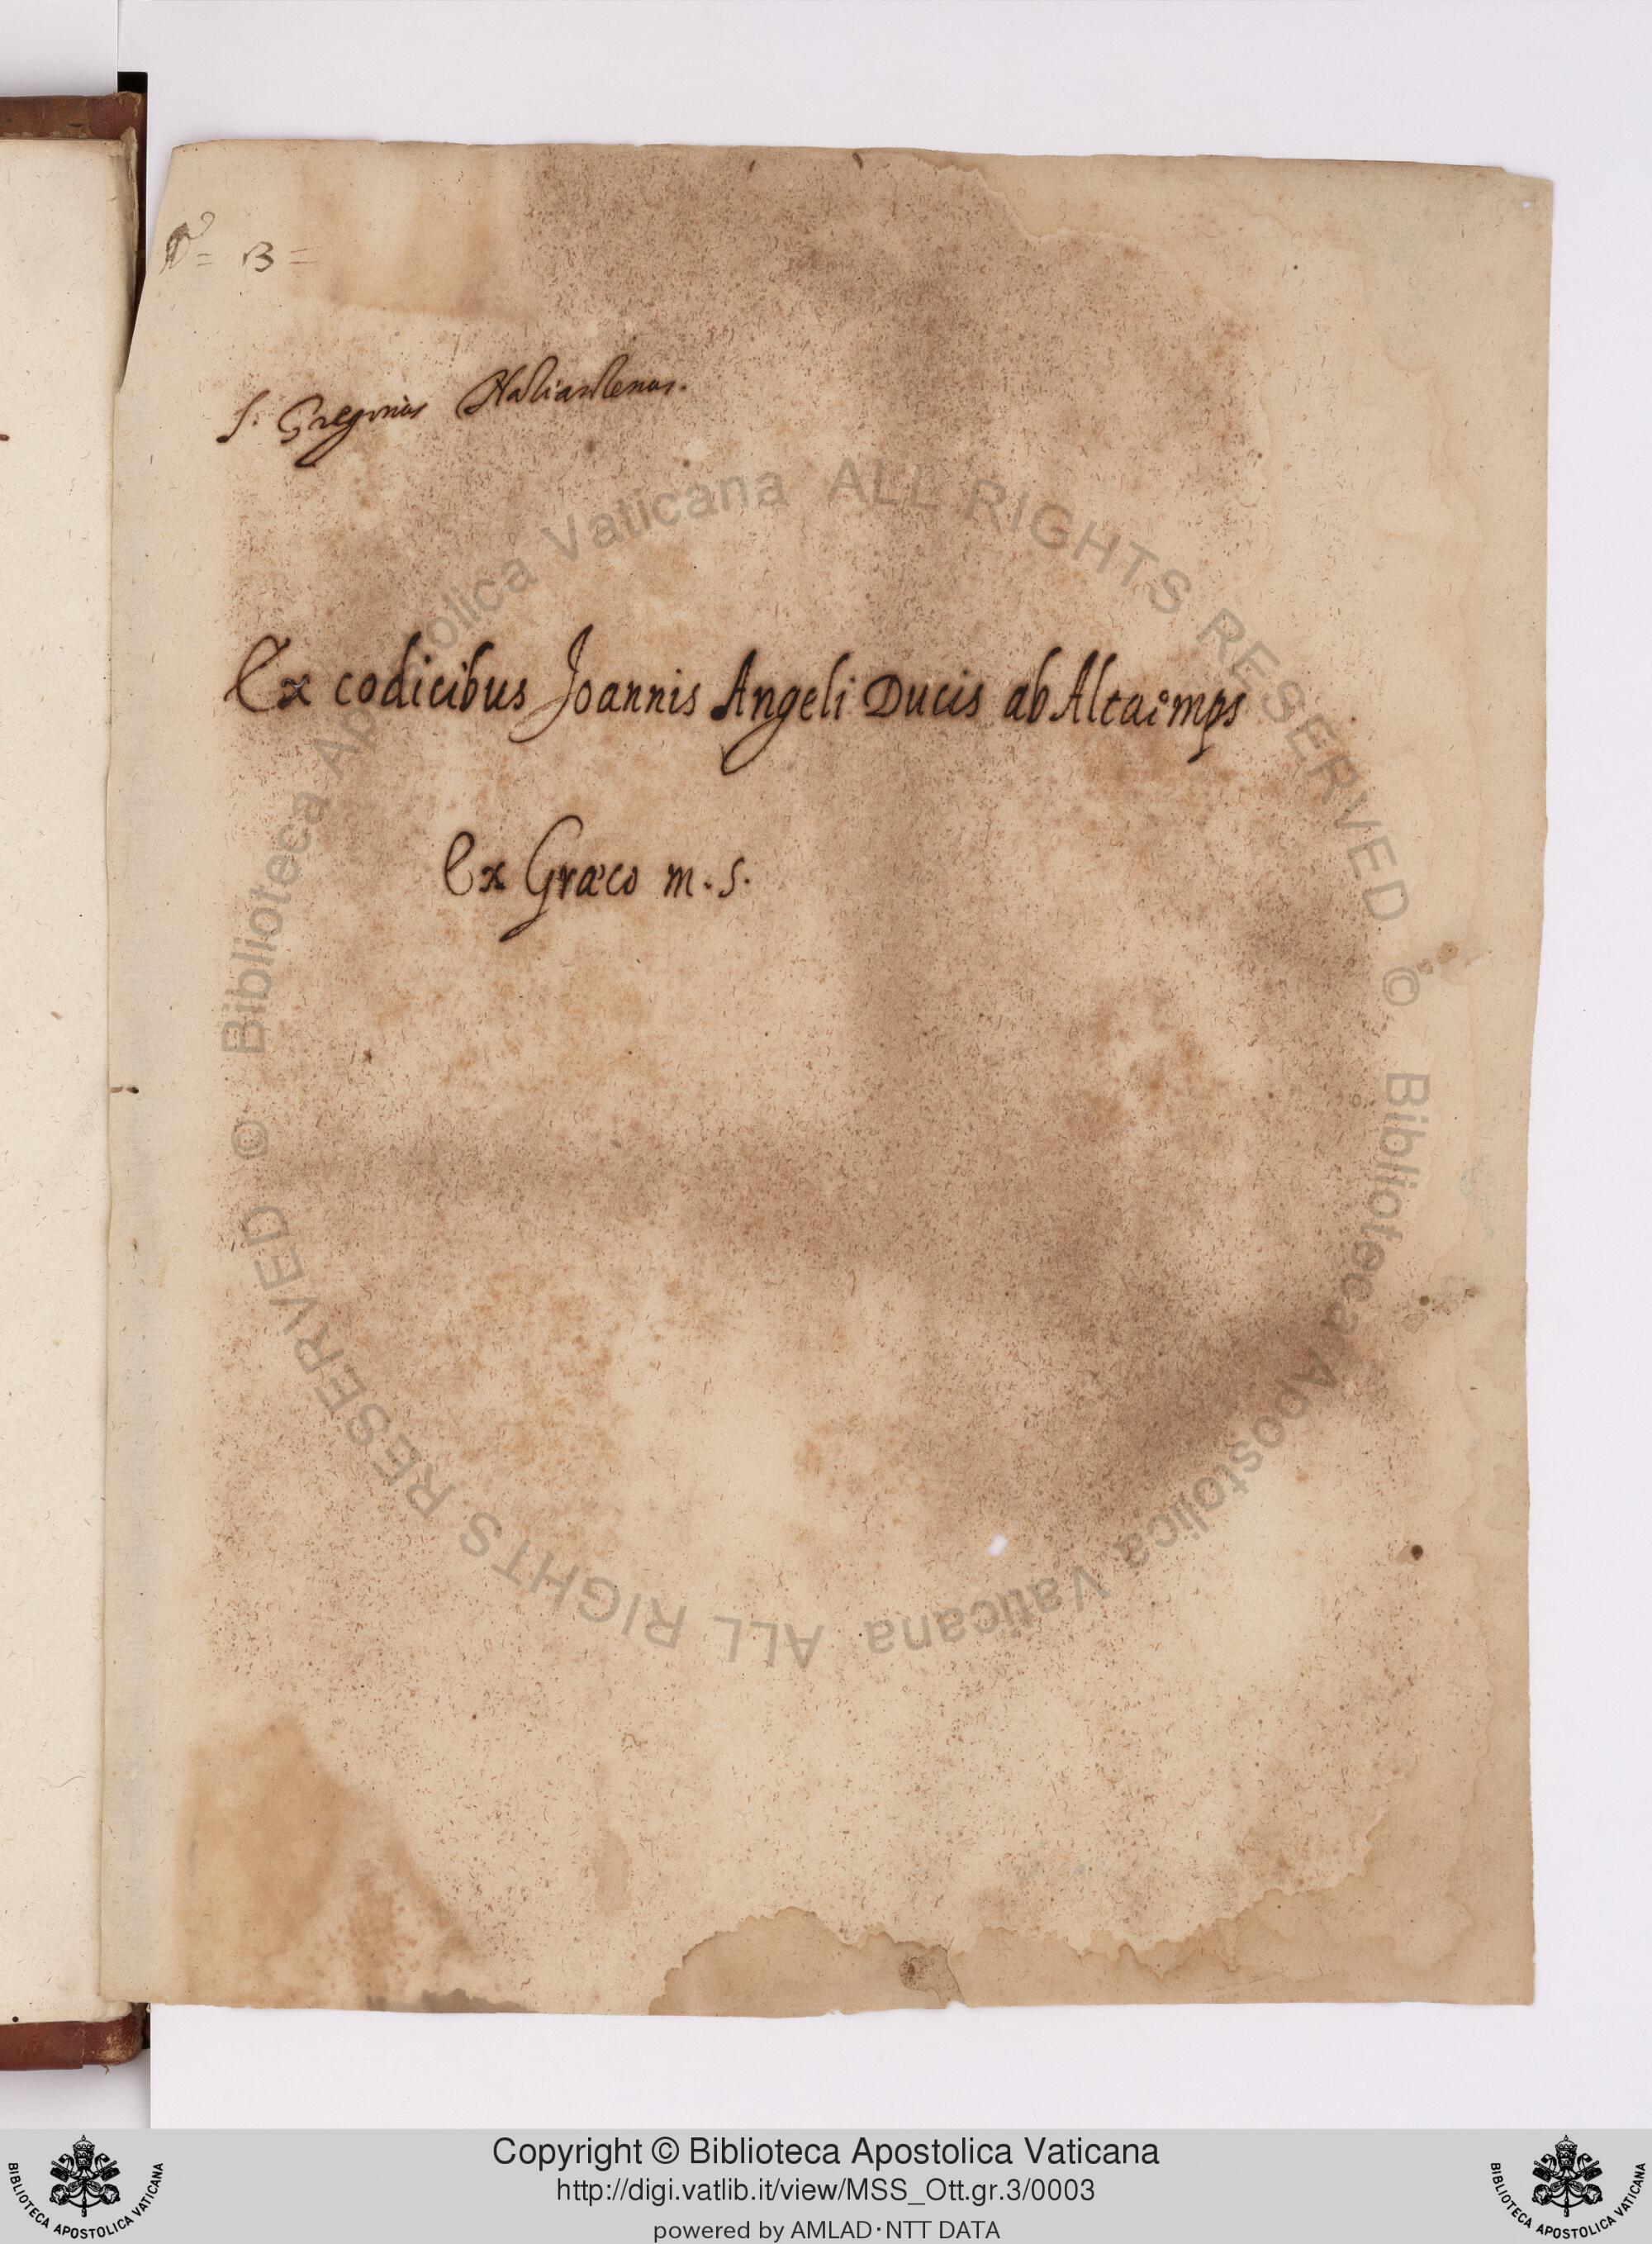 = B =
S. Gregorius Nazianzenus.
Ex codicibus Joannis Angeli Ducis ab Altaemps
Ex Græco m. s.
© Biblioteca Apostolica Vaticana ALL RIGHTS RESERVED
© Biblioteca Apostolica Vaticana ALL RIGHTS RESERVED
BIBLIOTECA APOSTOLICA VATICANA
Copyright © Biblioteca Apostolica Vaticana
http://digi.vatlib.it/view/MSS_Ott.gr.3/0003
powered by AMLAD·NTT DATA
BIBLIOTECA APOSTOLICA VATICANA